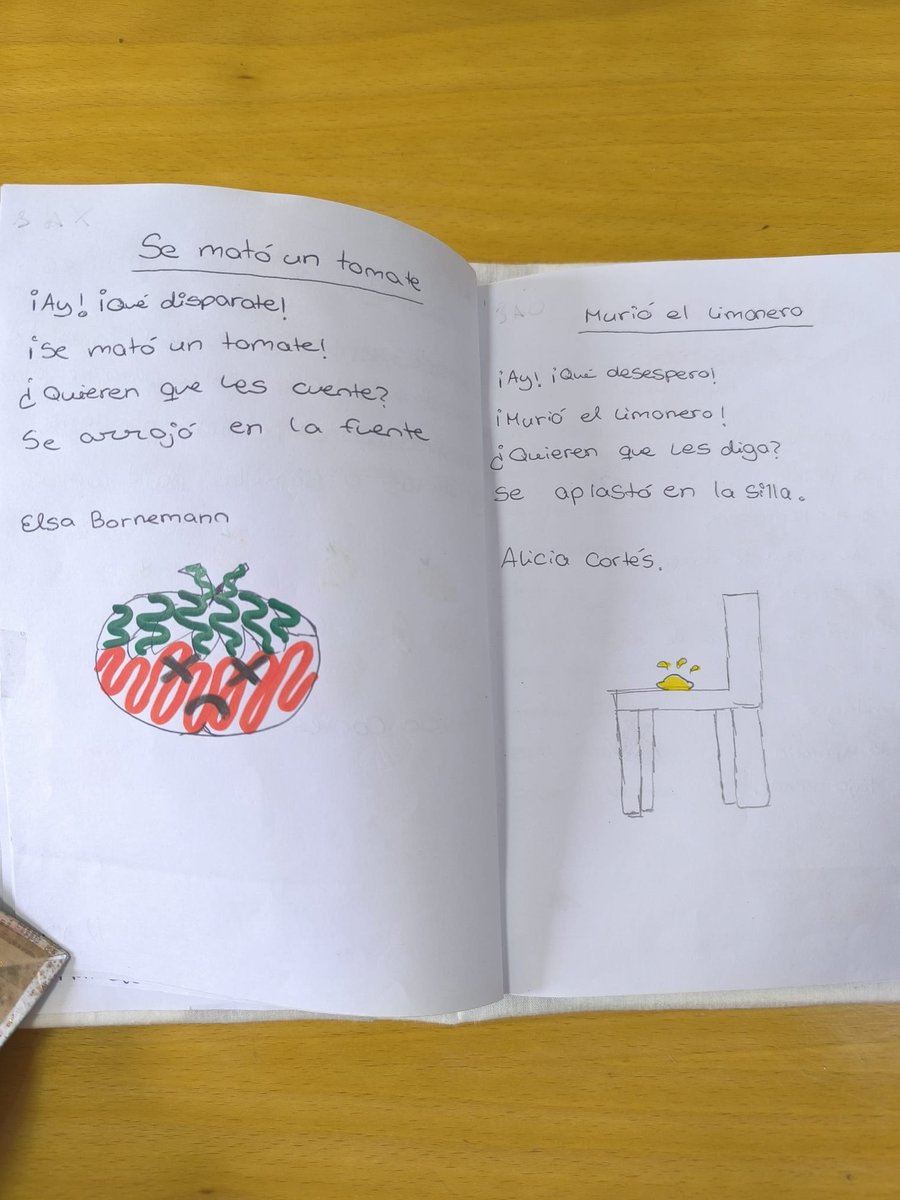 Se mató un tomate
¡Ay! ¡Qué disparate!
¡Se mató un tomate!
¿Quieren que les cuente?
Se arrojó en la fuente
Elsa Bornemann
Murió el limonero
¡Ay! ¡Qué desespero!
¡Murió el limonero!
¿Quieren que les diga?
se aplastó en la silla.
Alicia Cortés.